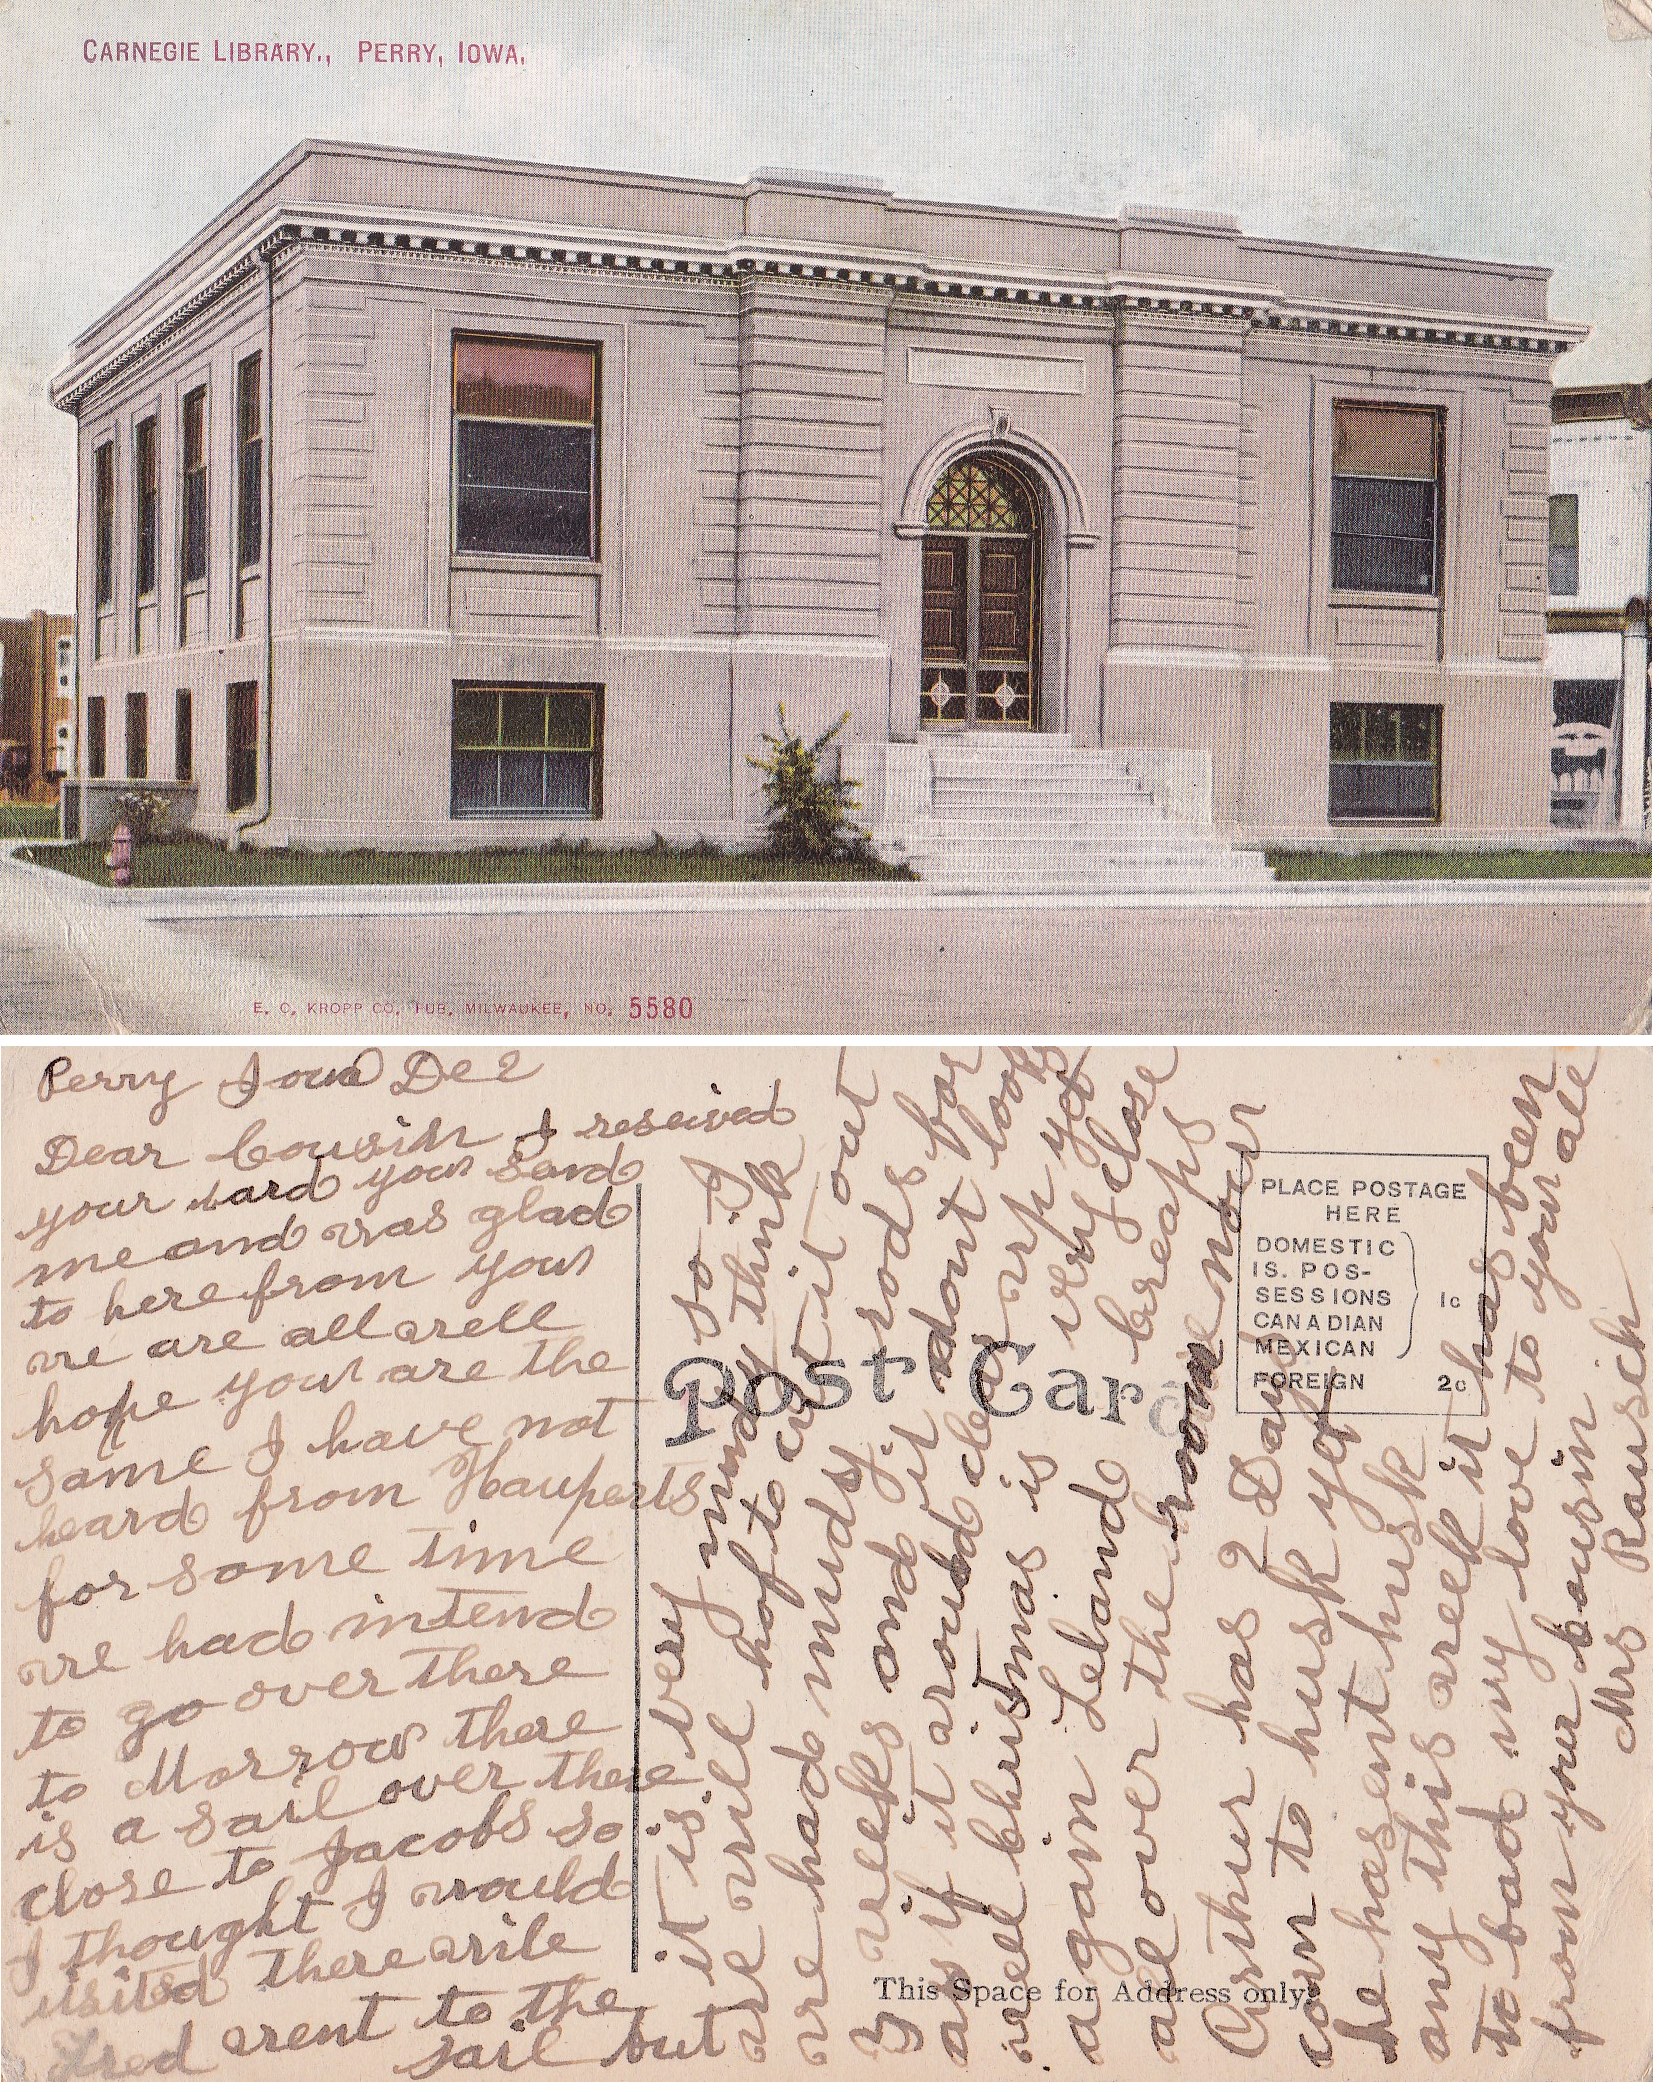 CARNEGIE LIBRARY., PERRY, IOWA.
E. C. KROPP CO. PUB. MILWAUKEE, NO. 5580
Perry Iowa Dec 2
Dear Cousin I reseived
your card your send
me and was glad
to here from your
we are all well
hope your are the
same I have not
heard from Hauperts
for some time
we had intend
to go over there
to Morrow there
is a sail over there
close to Jacobs so
I thought I would
visited there wile
Fred went to the
sail but
it is very mudy so I
we will hof to cut it out
we had mudy rods for
3 weeks and it dont look
as if it around clear up yet
well Christmas is very close
again Leland creaps
all over the room now
Arthur has 2 Days
corn to husk yet
he hasent husk
any this week it has been
to bad my love to your all
from your cousin
Mrs Rausch
Post Card
PLACE POSTAGE
HERE
DOMESTIC
IS. POS-
SESSIONS
CANADIAN
MEXICAN
1c
FOREIGN 2c
This Space for Address only.